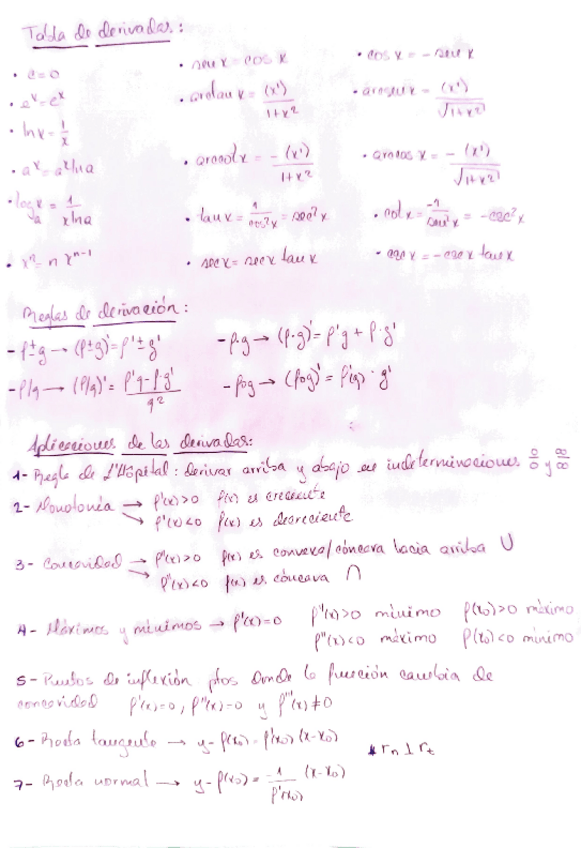 Tabla de derivadas:
• c=0 • sen x = cos x • cos x = - sen x
• eˣ=eˣ • arctan x = (x')/(1+x²) • arcsen x = (x')/√(1+x²)
• ln x = 1/x
• aˣ = aˣ ln a • arccot x = - (x')/(1+x²) • arccos x = - (x')/√(1+x²)
• logₐ x = 1/(x ln a) • tan x = 1/cos²x = sec²x • cot x = -1/sen²x = -csc²x
• xⁿ = n xⁿ⁻¹ • sec x = sec x tan x • csc x = -csc x tan x
Reglas de derivación:
- f±g → (f±g)' = f' ± g' - f·g → (f·g)' = f'g + f·g'
- f/g → (f/g)' = (f'g - f·g')/g² - fog → (fog)' = f'(g) · g'
Aplicaciones de las derivadas:
1- Regla de L'Hopital: derivar arriba y abajo en indeterminaciones 0/0 y ∞/∞
2- Monotonía → f'(x)>0 f(x) es creciente
→ f'(x)<0 f(x) es decreciente
3- Concavidad → f''(x)>0 f(x) es convexa/cóncava hacia arriba ∪
→ f''(x)<0 f(x) es cóncava ∩
4- Máximos y mínimos → f'(x)=0 f''(x)>0 mínimo f(x₀)>0 máximo
f''(x)<0 máximo f(x₀)<0 mínimo
5- Puntos de inflexión ptos donde la función cambia de
concavidad f'(x)=0, f''(x)=0 y f'''(x)≠0
6- Recta tangente → y-f(x₀)=f'(x₀) (x-x₀) * rₙ ⊥ rₜ
7- Recta normal → y-f(x₀) = -1/f'(x₀) (x-x₀)